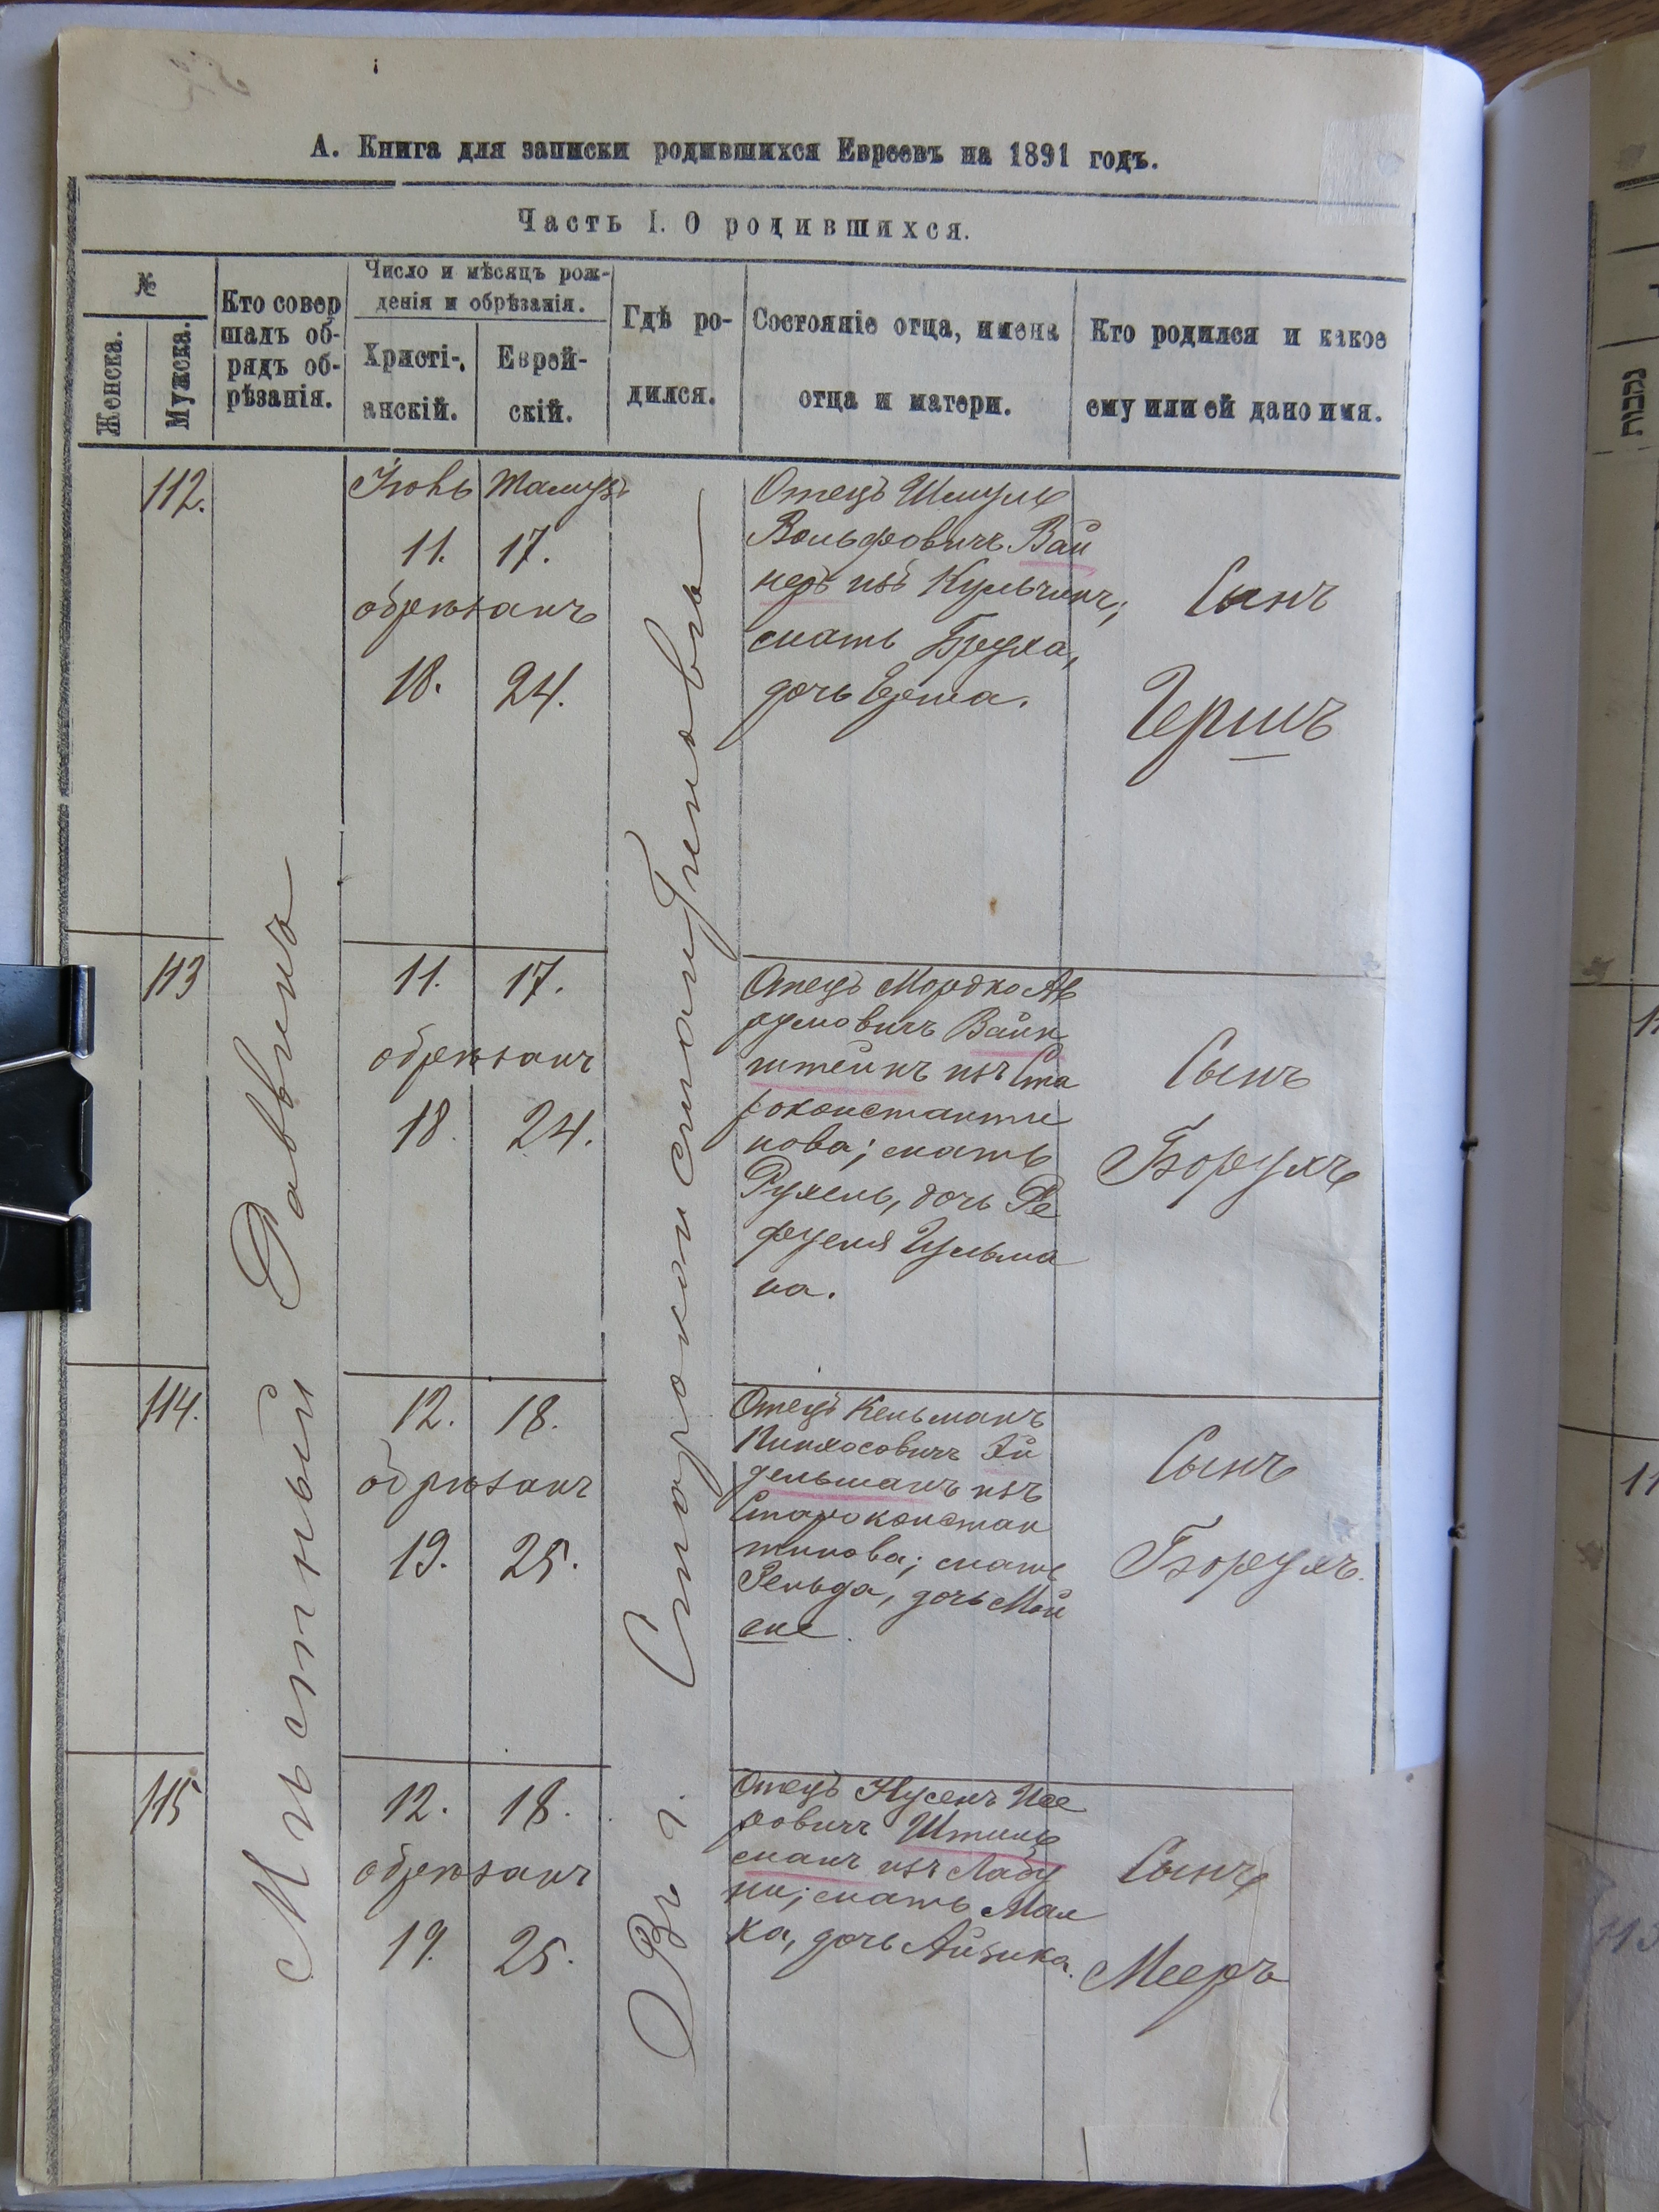 А. Книга для записки родившихся Евреевъ на 1891 годъ.
Часть I. О родившихся.
№
Женска.
Мужска.
Кто совер
шалъ об-
рядъ об-
рѣзанія.
Число и мѣсяцъ рож-
денія и обрѣзанія.
Христі-
анскій.
Еврей-
скій.
Гдѣ ро-
дился.
Состояніе отца, имена
отца и матери.
Кто родился и какое
ему или ей дано имя.
Мѣстный Раввинъ
Въ г. Староконстантиновѣ
112.
Іюнь Тамузъ
11. 17.
обрѣзанъ
18. 24.
Отецъ Шмуль
Вольфовичъ Вай
неръ изъ Кульчинъ;
мать Бруха,
дочь Ерша.
Сынъ
Гершъ
113
11. 17.
обрѣзанъ
18. 24.
Отецъ Мордко Ав
румовичъ Вайн
штейнъ изъ Ста
роконстанти
нова; мать
Рухель, дочь Ре
фуеля Гульма
на.
Сынъ
Борухъ
114.
12. 18.
обрѣзанъ
19. 25.
Отецъ Кельманъ
Пинхосовичъ Эй
дельманъ изъ
Староконстан
тинова; мать
дочь Мой
Сынъ
Борухъ.
115
12. 18.
обрѣзанъ
19. 25.
Отецъ Нусенъ
Штиль
манъ изъ Лабу
ни; мать Мал
ка, дочь Айзика.
Сынъ
Мееръ
נקבות